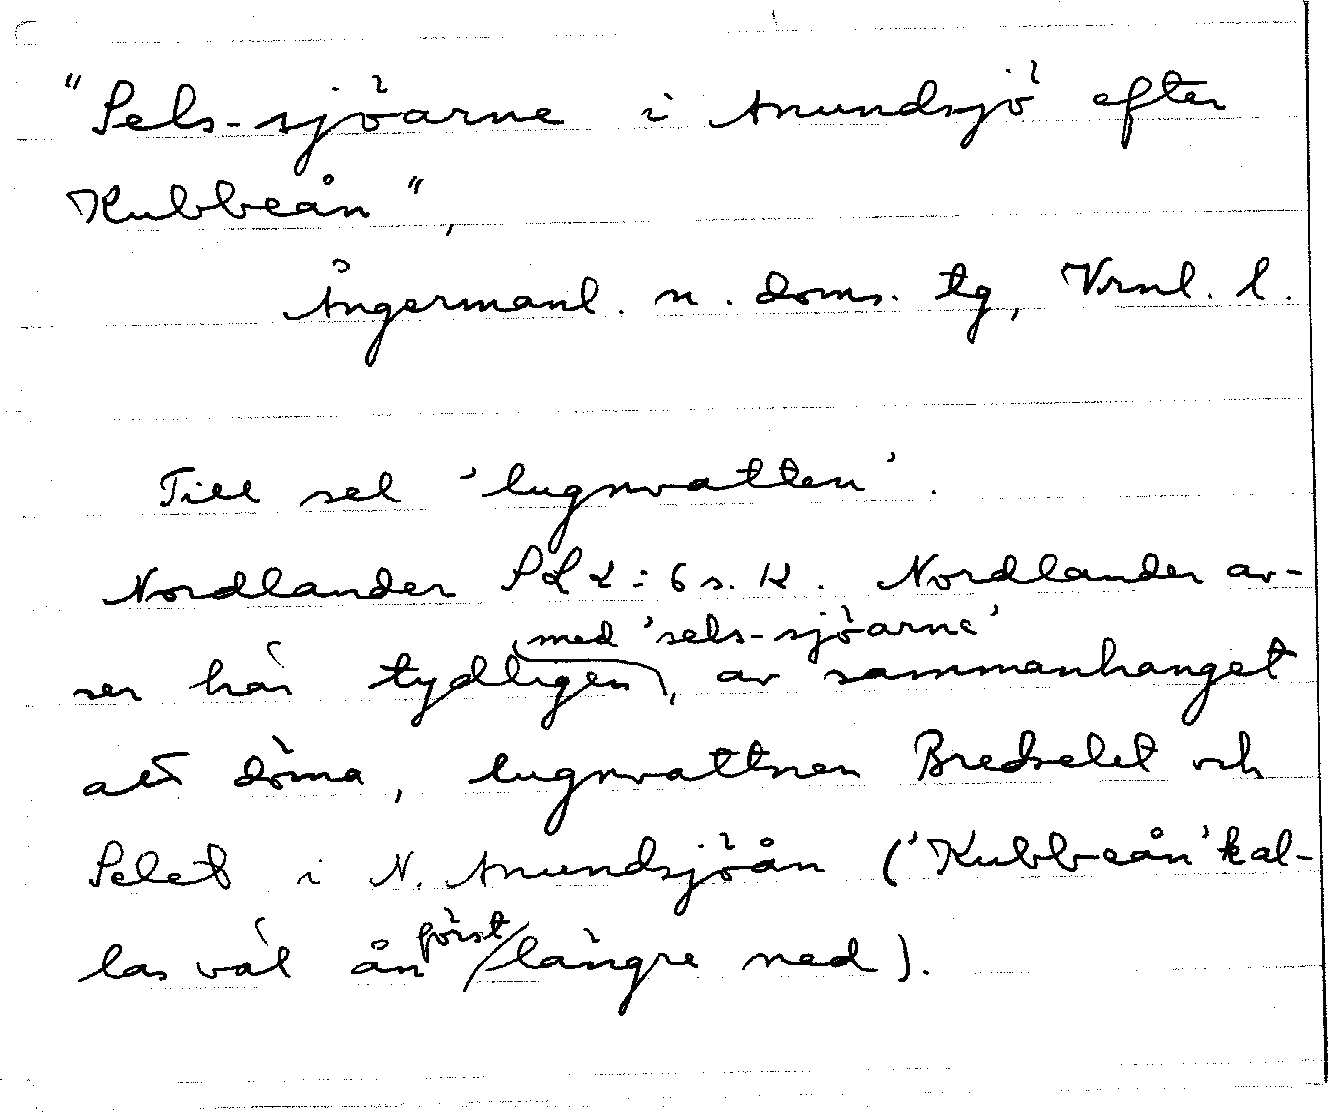 "Sels-sjöarne i Anundsjö efter
Kubbeån",
Ångermanl. n. doms. tg, Vrnl. l.
Till sel 'lugnvatten'.
Nordlander 6 s. 12. Nordlander av-
med 'sels-sjöarne'
ser här tydligen, av sammanhanget
att döma, lugnvattnen Bredselet och
Selet i N. Anundsjöån ('Kubbeån' kal-
las väl ån först längre ned).